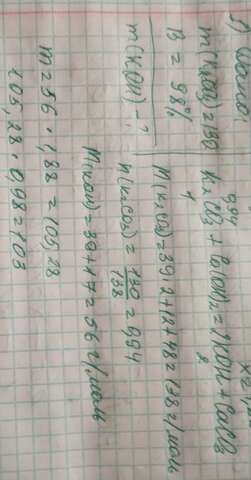 3) Дано:
m(K₂CO₃)=130
B = 98%
m(KOH) - ?
0,94
K₂CO₃ + Ca(OH)₂ = 2KOH + CaCO₃
1 2
M(K₂CO₃)=39·2+12+48=138 г/моль
n(K₂CO₃) = 130/138 = 0,94
M(KOH)=39+17=56 г/моль
m=56 · 1,88 = 105,28
105,28 · 0,98 = 103